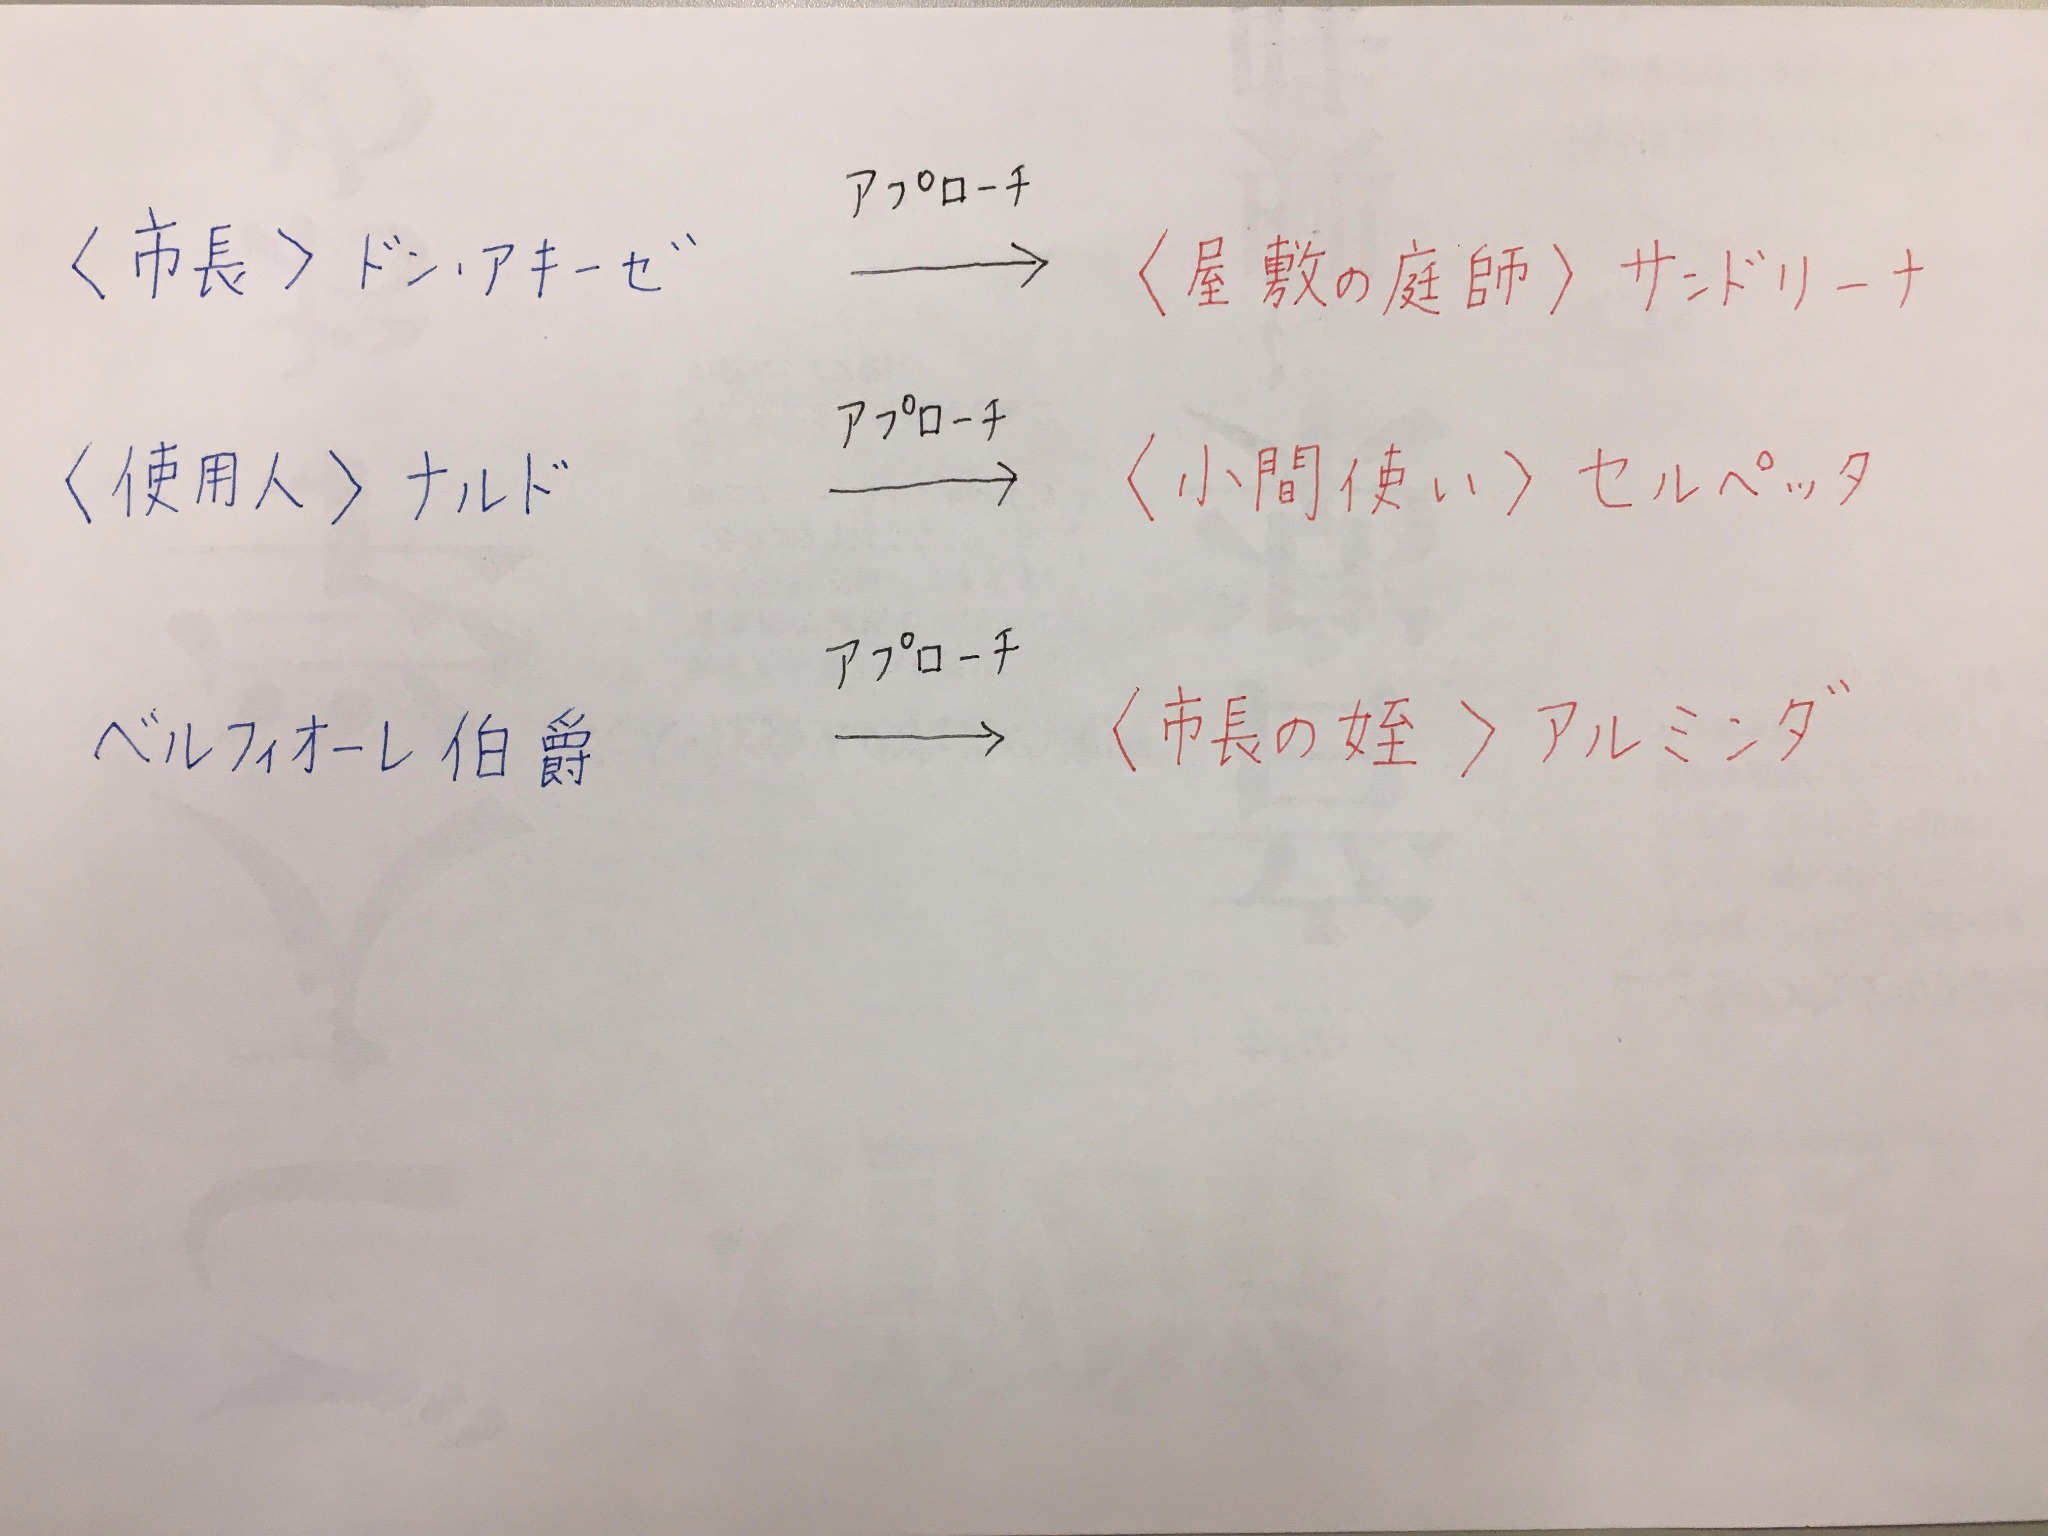 アプローチ
〈市長〉ドン・アキーゼ → 〈屋敷の庭師〉サンドリーナ
アプローチ
〈使用人〉ナルド → 〈小間使い〉セルペッタ
アプローチ
ベルフィオーレ伯爵 → 〈市長の姪〉アルミンダ